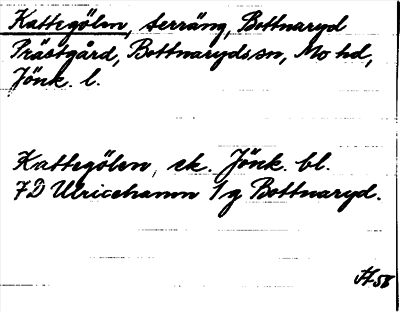 Kattegölen, terräng, Bottnaryd
Prästgård, Bottnaryds sn, Mo hd,
Jönk. l.
Kattegölen, ek. Jönk. bl.
7D Ulricehamn 1g Bottnaryd.
58